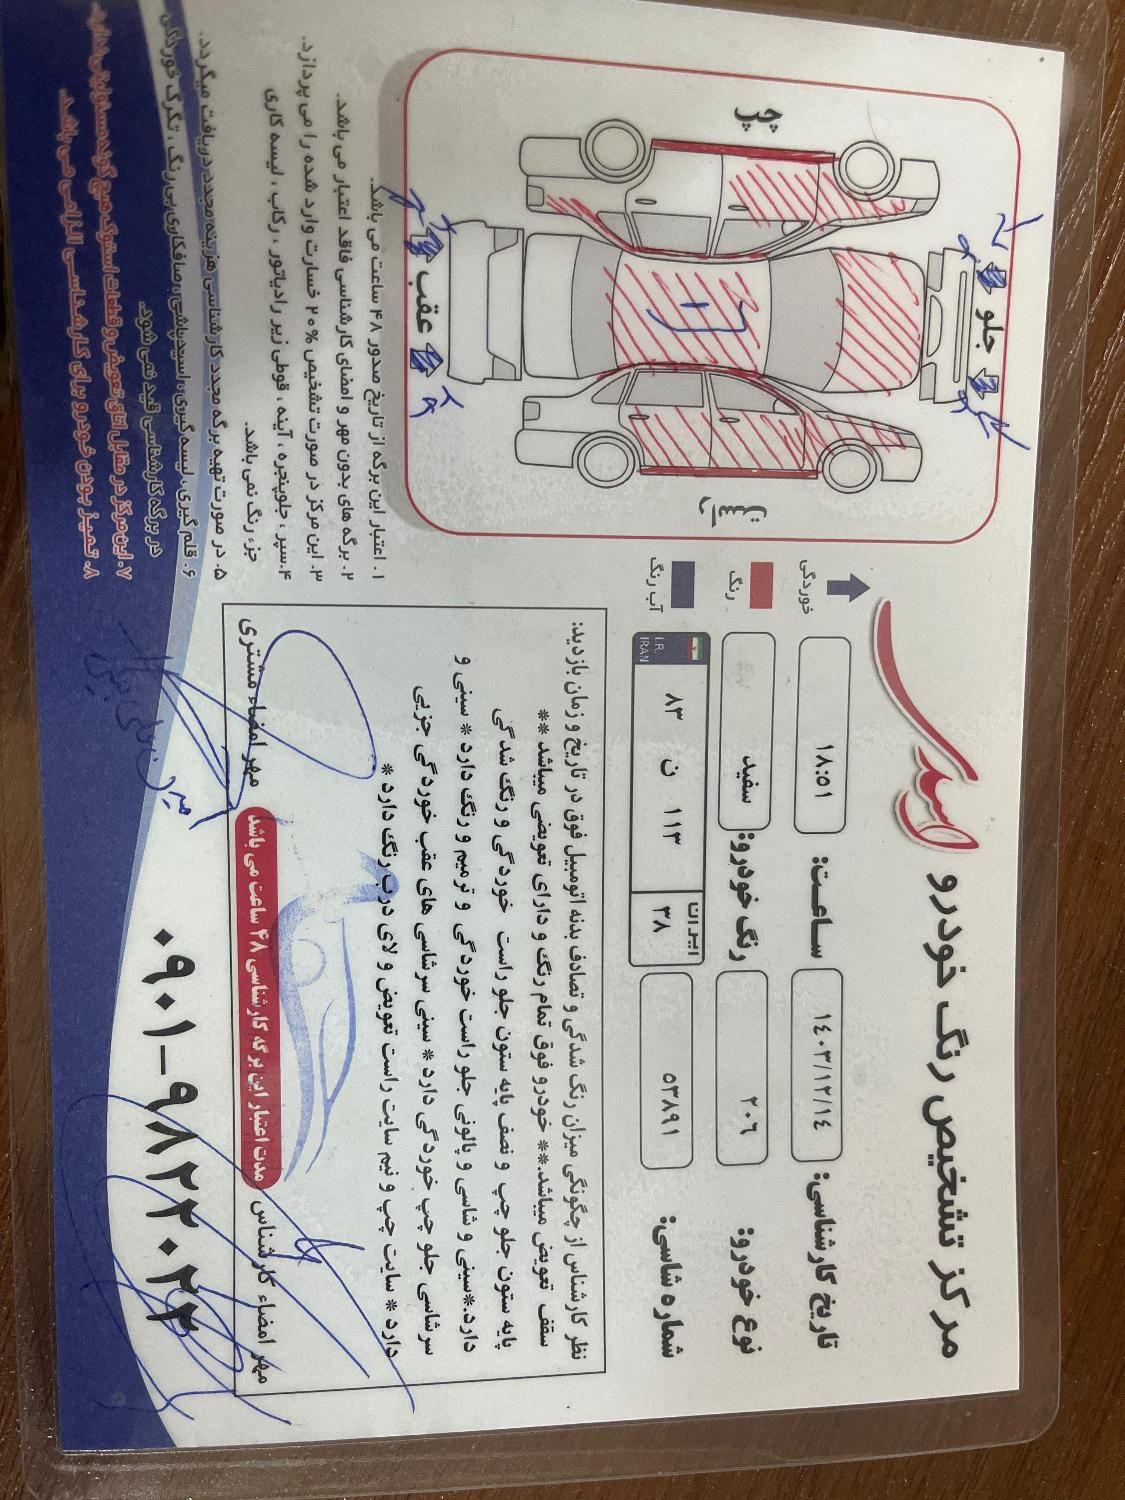 مرکز تشخیص رنگ خودرو اسدی
تاریخ کارشناسی: ۱۴۰۳/۱۲/۱۴
ساعت: ۱۸:۵۱
نوع خودرو: ۲۰۶
رنگ خودرو: سفید
شماره شاسی: ۵۳۸۹۱
ایران ۳۸
۱۱۳ ن ۸۳
I.R.
IRAN
خوردگی
رنگ
آب رنگ
نظر کارشناس از چگونگی میزان رنگ شدگی و تصادف بدنه اتومبیل فوق در تاریخ و زمان بازدید:
سقف تعویض میباشد.** خودرو فوق تمام رنگ و دارای تعویضی میباشد **
پایه ستون جلو چپ و نصف پایه ستون جلو راست خوردگی و رنگ شدگی
دارد.*سینی و شاسی و پالونی جلو راست خوردگی و ترمیم و رنگ دارد * سینی و
سرشاسی جلو چپ خوردگی دارد * سینی سرشاسی های عقب خوردگی جزیی
دارد * سایت چپ و نیم سایت راست تعویض و لای درب رنگ دارد *
مهر امضاء کارشناس
مدت اعتبار این برگه کارشناسی ۴۸ ساعت می باشد
مهر امضاء مشتری
جلو
چپ
راست
عقب
ت
۱. اعتبار این برگه از تاریخ صدور ۴۸ ساعت می باشد.
۲. برگه های بدون مهر و امضای کارشناسی فاقد اعتبار می باشد.
۳. این مرکز در صورت تشخیص ۲۰% خسارت وارد شده را می پردازد.
۴. سپر ، جلوپنجره ، آینه ، قوطی زیر رادیاتور ، رکاب ، لیسه کاری
جزء رنگ نمی باشد.
۵. در صورت تهیه برگه مجدد کارشناسی هزینه مجدد دریافت میگردد.
۶. قلم گیری ، لیسه گیری ، اسیدپاشی ، صافکاری بی رنگ ، تگرگ خوردگی
در برگه کارشناسی قید نمی شود.
۷. این مرکز در مقابل اتاق تعویض و قطعات استوک هیچ گونه مسئولیتی ندارد
۸. تمیز بودن خودرو برای کارشناسی الزامی می باشد
۰۹۰۱-۹۸۲۲۰۲۲